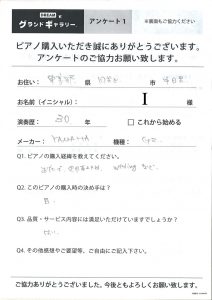 DREAM と
グランドギャラリー
アンケート1
※裏面もご協力ください
ピアノ購入いただき誠にありがとうございます。
アンケートのご協力お願い致します。
お住い: 県 市
お名前(イニシャル): I 様
演奏歴: 30 年 □ これから始める
メーカー: YAMAHA 機種:
Q1. ピアノの購入経緯を教えてください。
Q2. このピアノの購入時の決め手は?
音.
Q3. 品質・サービス内容には満足いただけていますでしょうか?
はい.
Q4. その他感想やご要望等、ご自由にご記入下さい。
ご協力ありがとうございました。今後ともよろしくお願い致します。